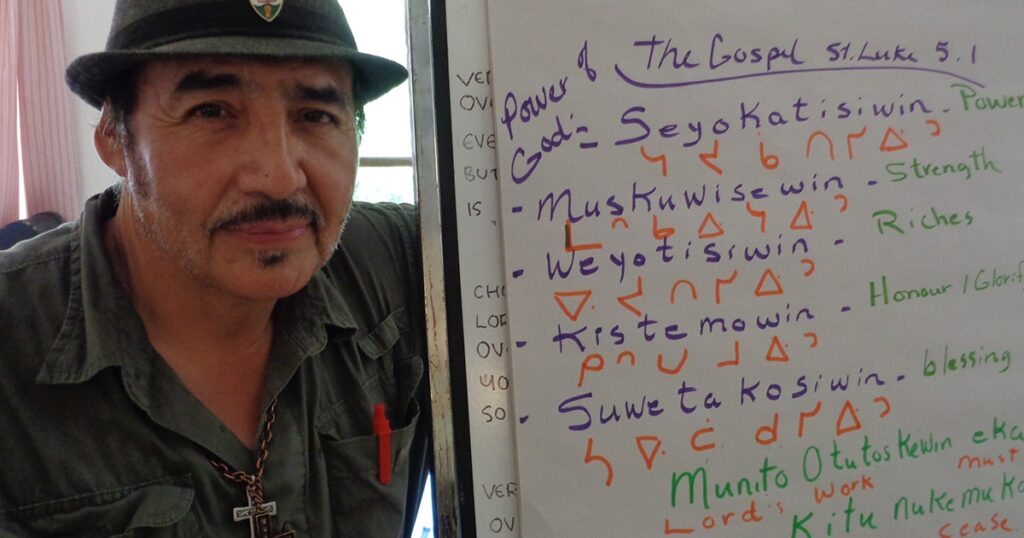 Power of God:= The Gospel St. Luke 5.1
Seyokatisiwin - Power
ᓭ ᔪ ᑲ ᑎ ᓯ ᐃᐧ ᐣ
- Muskuwisewin - Strength
ᒪ ᐢ ᑲ ᐃ ᓭ ᐃᐧ ᐣ
- Weyotisiwin - Riches
ᐁᐧ ᔪ ᑎ ᓯ ᐃᐧ ᐣ
- Kistemowin - Honour / Glorif
ᑭ ᐢ ᑌ ᒧ ᐃᐧ ᐣ
- Suwetakosiwin - blessing
ᓴ ᐁᐧ ᑖ ᑯ ᓯ ᐃᐧ ᐣ
Munito Otutoskewin eka
Lord's work must
Kitu nukemuka
cease